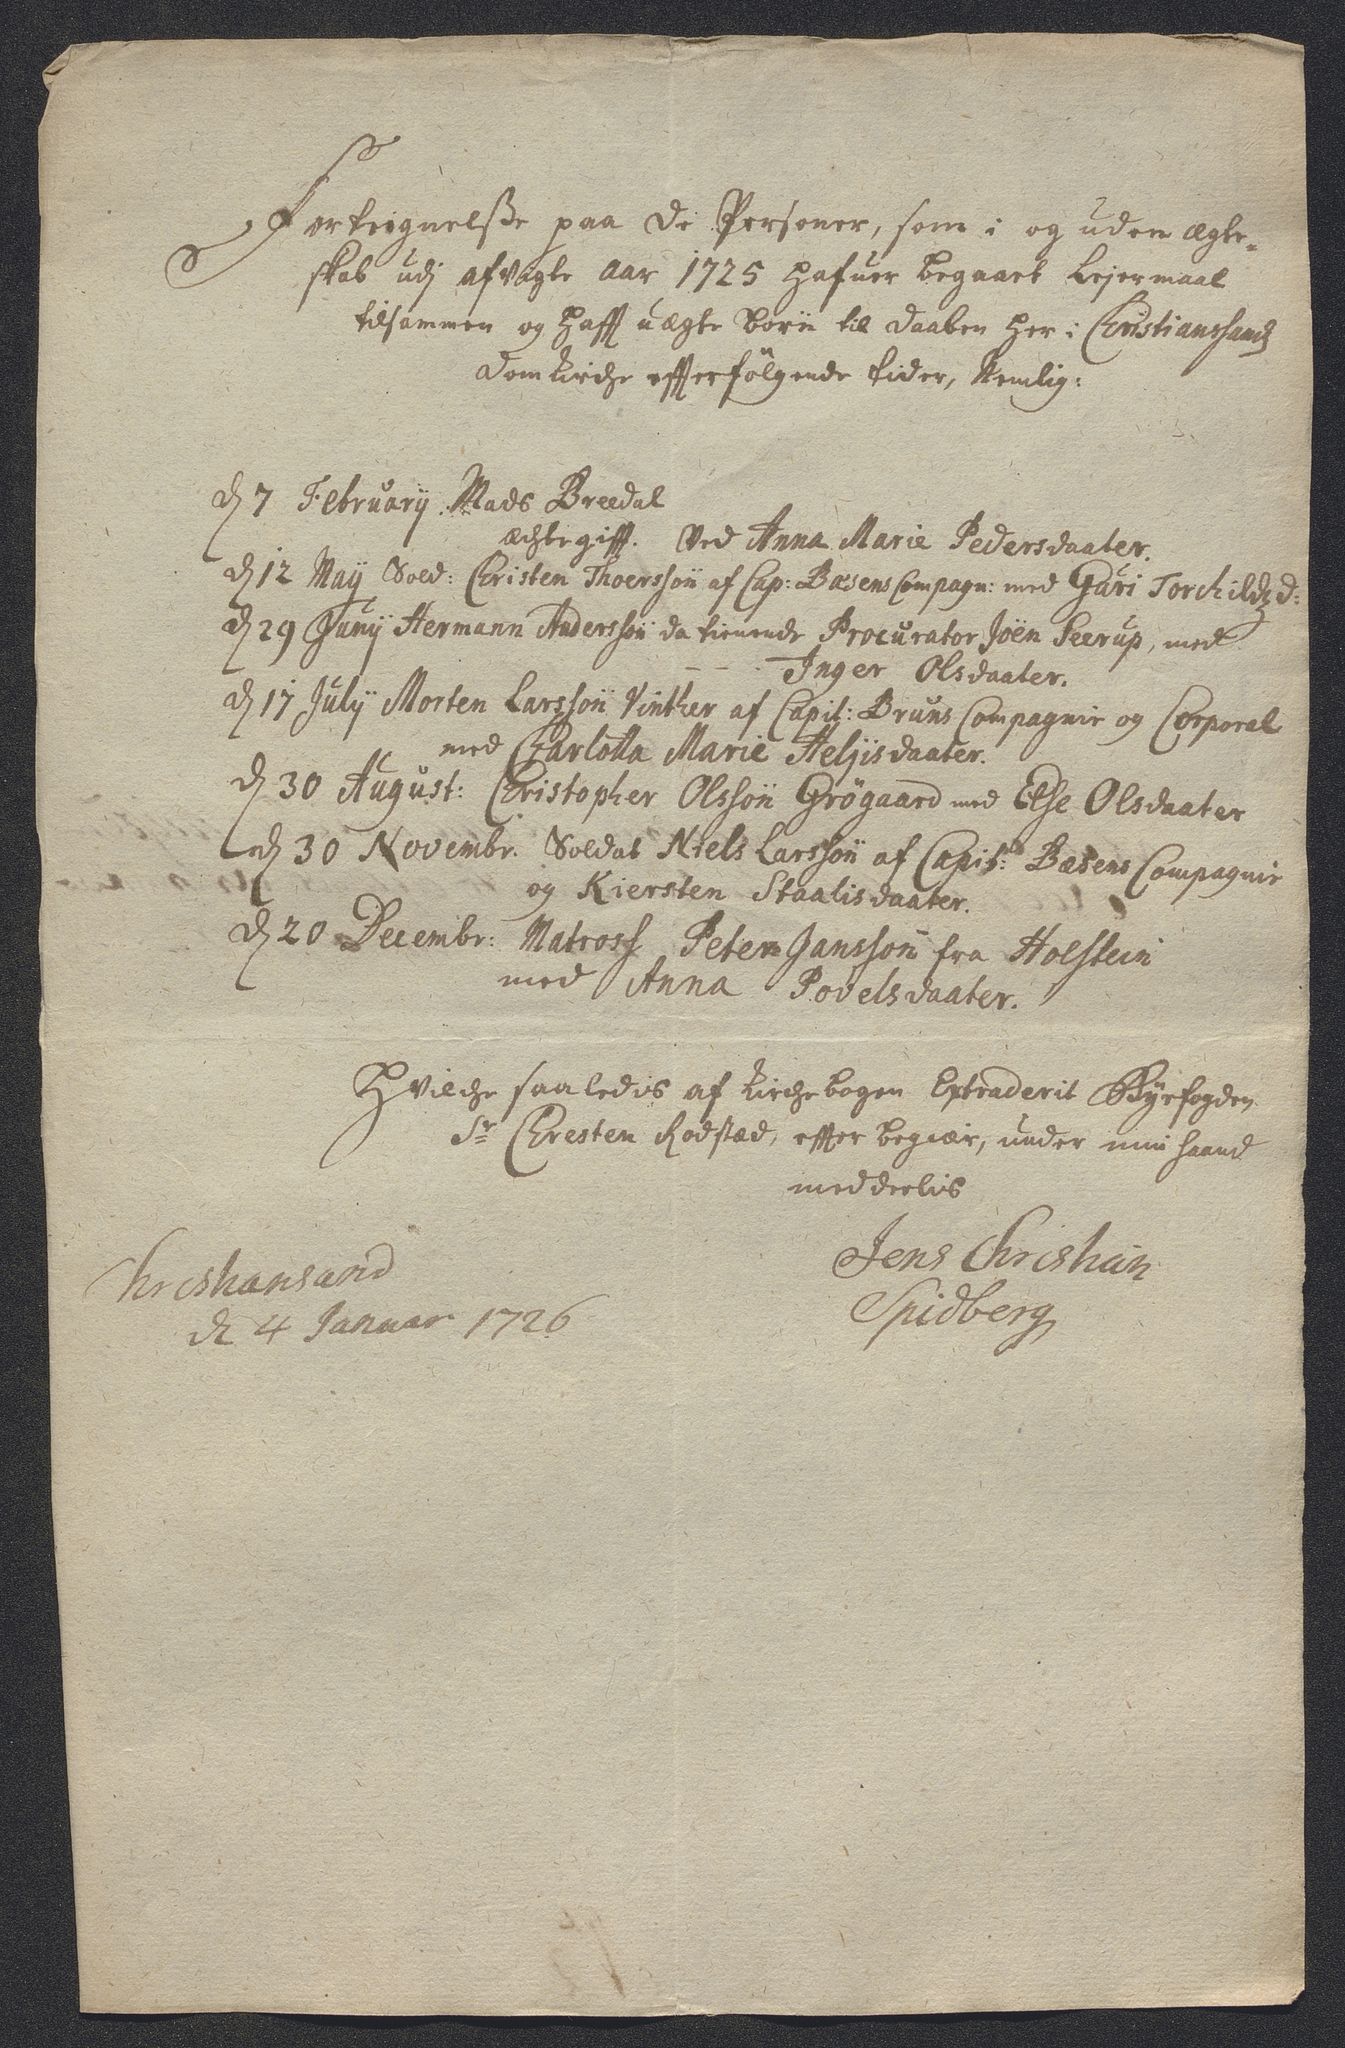 Fortegnelsse paa de Personer, som i og uden ægte-
skab udj afvigte aar 1725 hafuer begaaet Lejermaal
tilsammen og hafft uægte børn til daaben her i Christianssands
domkirche effterfølgende tider, Nemlig:
d 7 Februarij Mads Breedal
ächtegifft. Ved Anna Marie Pedersdaater.
d 12 Maij Sold: Christen Thoerssøn af Cap: Bæsens Compagn: med Gúri Torchildsd:
d 29 Junij Hermann Anderssøn da tienende Procurator Joën Seerup, med
Inger Olsdaater.
d 17 Julij Morten Larssøn Vinther af Capit: Bruns Compagnie og Corporal
med Charlotta Marie Heljisdaater.
d 30 August: Christopher Olssøn Grøgaard med Else Olsdaater
d 30 Novembr. Soldat Niels Larssøn af Capit: Bæsens Compagnie
og Kiersten Staalisdaater.
d 20 Decembr: Matross Peter Janssøn fra Holstein
med Anna Povelsdaater.
Hvilche saaledis af kirchebogen Extraderit Byefogden
Sr Chresten Rodstæd, effter begiær, under min haand
meddeelis
Jens Christian
Spidberg
Christiansand
d 4 Januar 1726